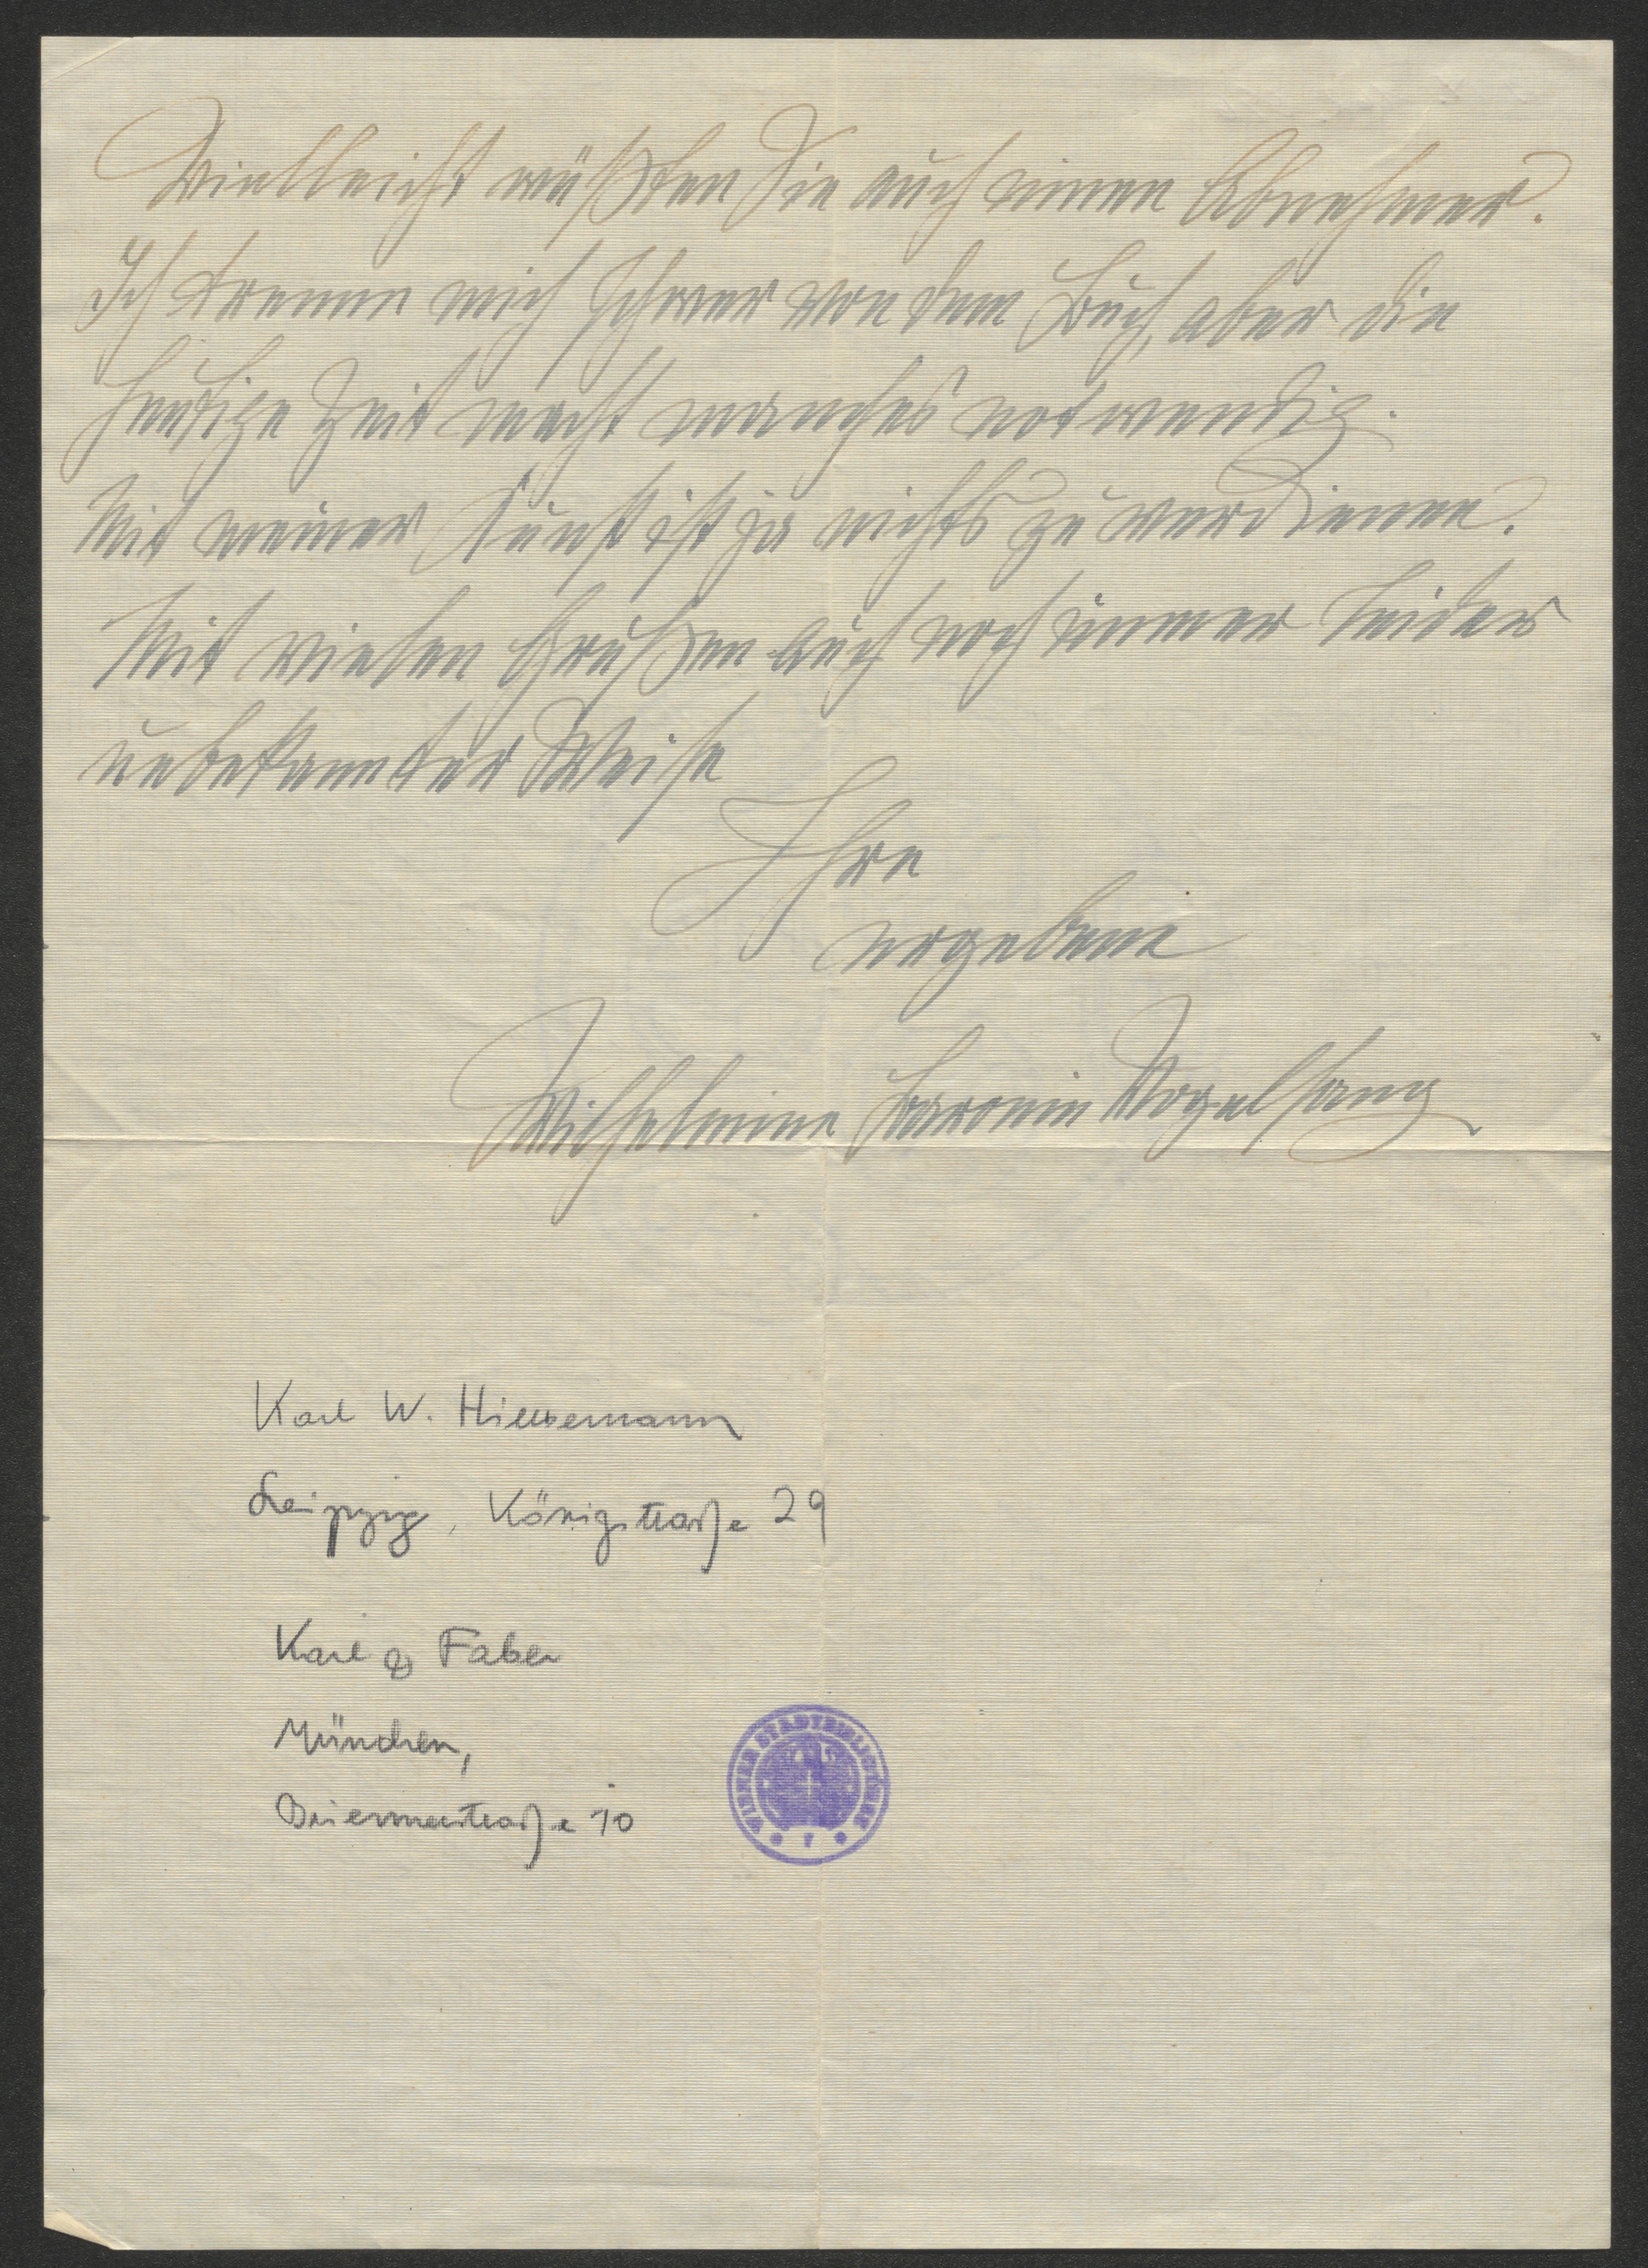 Vielleicht wüßten Sie auch einen Abnehmer.
Ich trenne mich schwer von dem Buch, aber die
heutige Zeit macht manches notwendig.
Mit meiner Kunst ist ja nichts zu verdienen.
Mit vielen Grüßen auch noch immer leider
unbekannter Weise
Ihre
ergebene
Wilhelmine Baronin Vogelsang
Karl W. Hiersemann
Leipzig, Königstraße 29
Karl & Faber
München,
Briennerstraße 10
WIENER STADTBIBLIOTHEK